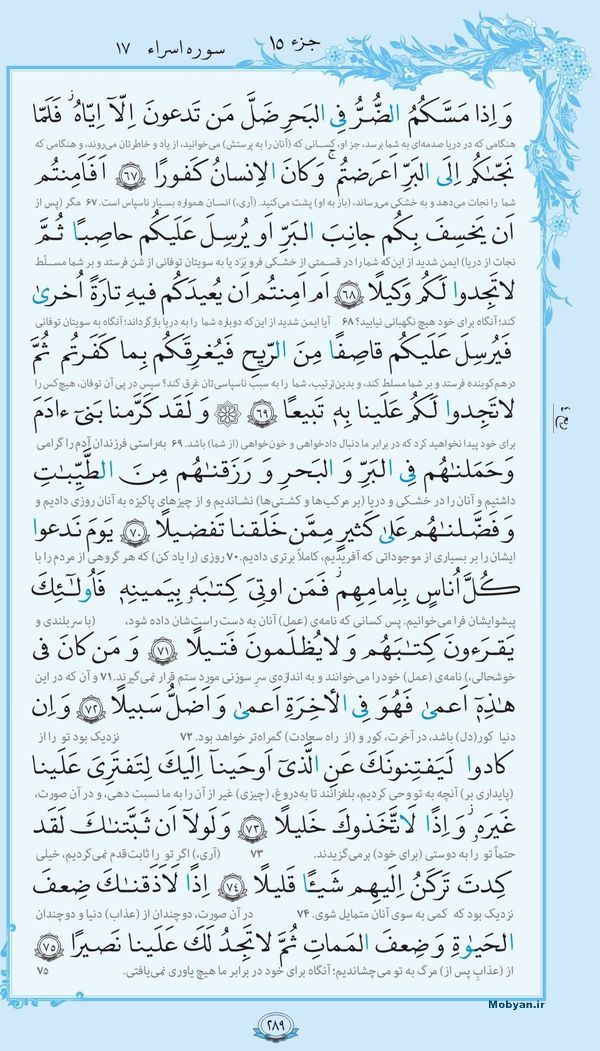 جزء ۱۵
سوره اسراء ۱۷
وَ اِذا مَسَّكُمُ الضُّرُّ فِی البَحرِ ضَلَّ مَن تَدعونَ اِلّآ اِیّاهُ ۖ فَلَمّا
هنگامی که در دریا صدمه‌ای به شما برسد، جز او، کسانی که (آنان را به پرستش) می‌خوانید، از یاد و خاطرتان می‌روند، و هنگامی که
نَجّىٰكُم اِلَی البَرِّ اَعرَضتُم ۚ وَ كانَ الاِنسانُ كَفورًا ﴿۶۷﴾ اَفَاَمِنتُم
شما را نجات می‌دهد و به خشکی می‌رساند، (باز به او) پشت می‌کنید. (آری،) انسان همواره بسیار ناسپاس است. ۶۷ مگر (پس از
اَن یَخسِفَ بِكُم جانِبَ البَرِّ اَو یُرسِلَ عَلَیكُم حاصِبًا ثُمَّ
نجات از دریا) ایمن شدید از این‌که شما را در قسمتی از خشکی فرو بَرَد یا به سویتان توفانی از شن فرستد و بر شما مسلّط
لا تَجِدوا لَكُم وَكیلًا ﴿۶۸﴾ اَم اَمِنتُم اَن یُعیدَكُم فیهِ تارَةً اُخرىٰ
کند؛ آنگاه برای خود هیچ نگهبانی نیابید؟ ۶۸ آیا ایمن شدید از این‌که دوباره شما را به دریا بازگرداند؛ آنگاه به سویتان توفانی
فَیُرسِلَ عَلَیكُم قاصِفًا مِنَ الرّیحِ فَیُغرِقَكُم بِما كَفَرتُم ثُمَّ
درهم‌کوبنده فرستد و بر شما مسلط کند، و بدین‌ترتیب، شما را به سبب ناسپاسی‌تان غرق کند؟ سپس در پی آن توفان، هیچ‌کس را
لا تَجِدوا لَكُم عَلَینا بِهٖ تَبیعًا ﴿۶۹﴾ وَ لَقَد كَرَّمنا بَنیٓ ءادَمَ
برای خود پیدا نخواهید کرد که در برابر ما دنبال دادخواهی و خون‌خواهی (از شما) باشد. ۶۹ به‌راستی فرزندان آدم را گرامی
وَ حَمَلنٰهُم فِی البَرِّ وَ البَحرِ وَ رَزَقنٰهُم مِنَ الطَّیِّبٰتِ
داشتیم و آنان را در خشکی و دریا (بر مرکب‌ها و کشتی‌ها) نشاندیم و از چیزهای پاکیزه به آنان روزی دادیم و
وَ فَضَّلنٰهُم عَلىٰ كَثیرٍ مِمَّن خَلَقنا تَفضیلًا ﴿۷۰﴾ یَومَ نَدعوا
ایشان را بر بسیاری از موجوداتی که آفریدیم، کاملاً برتری دادیم. ۷۰ روزی (را یاد کن) که هر گروهی از مردم را با
كُلَّ اُناسٍ بِاِمامِهِم ۖ فَمَن اوتِیَ كِتٰبَهٗ بِیَمینِهٖ فَاُولٰٓئِكَ
پیشوایشان فرا می‌خوانیم. پس کسانی که نامه‌ی (عمل) آنان به دست راست‌شان داده شود، (با سربلندی و
یَقرَءونَ كِتٰبَهُم وَ لا یُظلَمونَ فَتیلًا ﴿۷۱﴾ وَ مَن كانَ فی
خوشحالی،) نامه‌ی (عمل) خود را می‌خوانند و به اندازه‌ی سرِ سوزنی مورد ستم قرار نمی‌گیرند. ۷۱ و آن که در این
هٰذِهٖٓ اَعمىٰ فَهُوَ فِی الأٰخِرَةِ اَعمىٰ وَ اَضَلُّ سَبیلًا ﴿۷۲﴾ وَ اِن
دنیا کور(دل) باشد، در آخرت، کور و (از راه سعادت) گمراه‌تر خواهد بود. ۷۲ نزدیک بود تو را از
كادوا لَیَفتِنونَكَ عَنِ الَّذیٓ اَوحَینآ اِلَیكَ لِتَفتَرِیَ عَلَینا
(پایداری بر) آنچه به تو وحی کردیم، بلغزانند تا به‌دروغ، (چیزی) غیر از آن را به ما نسبت دهی، و در آن صورت،
غَیرَهٗ ۖ وَ اِذًا لَاتَّخَذوكَ خَلیلًا ﴿۷۳﴾ وَ لَولآ اَن ثَبَّتنٰكَ لَقَد
حتماً تو را به دوستی (برای خود) برمی‌گزیدند. ۷۳ (آری،) اگر تو را ثابت‌قدم نمی‌کردیم، خیلی
كِدتَ تَركَنُ اِلَیهِم شَیـًٔا قَلیلًا ﴿۷۴﴾ اِذًا لَاَذَقنٰكَ ضِعفَ
نزدیک بود که کمی به سوی آنان متمایل شوی. ۷۴ در آن صورت، دوچندان از (عذاب) دنیا و دوچندان
الحَیوٰةِ وَ ضِعفَ المَماتِ ثُمَّ لا تَجِدُ لَكَ عَلَینا نَصیرًا ﴿۷۵﴾
از (عذاب پس از) مرگ به تو می‌چشاندیم؛ آنگاه برای خود در برابر ما هیچ یاوری نمی‌یافتی. ۷۵
Mobyan.ir
۲۸۹